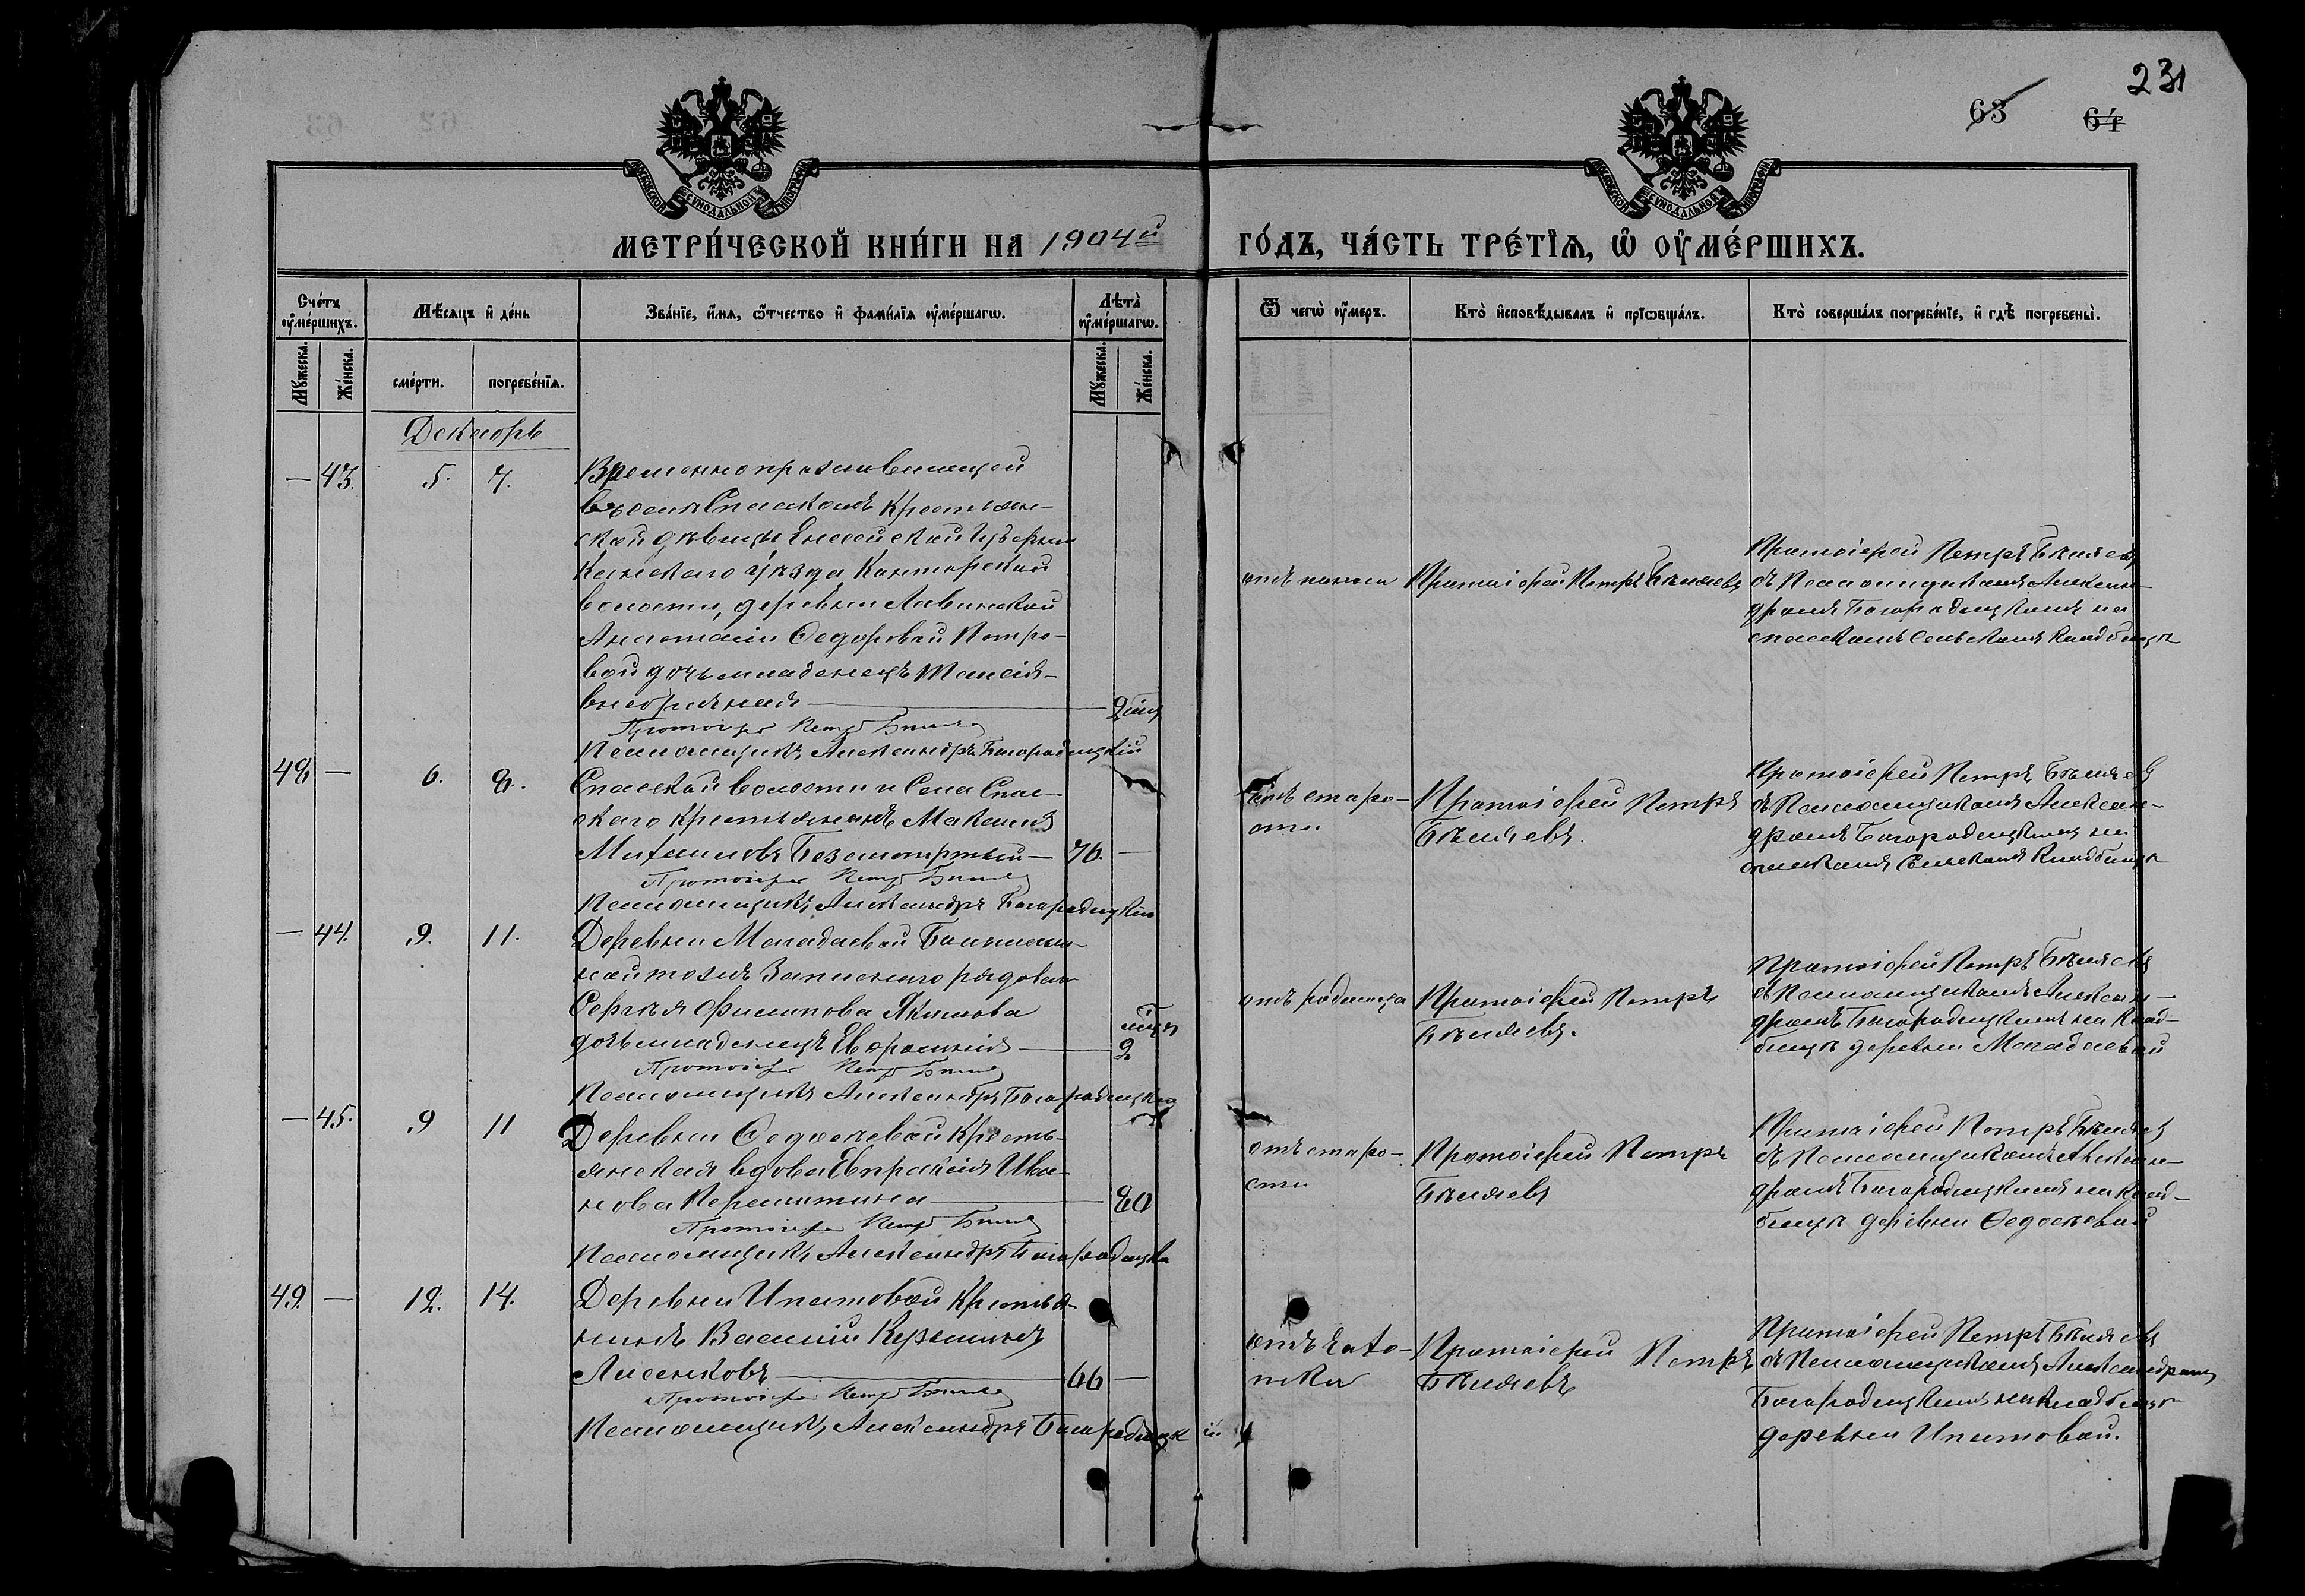 231
63 64
МОСКОВСКОЙ СѴНОДАЛЬНОЙ ТИПОГРАФІИ
МОСКОВСКОЙ СѴНОДАЛЬНОЙ ТИПОГРАФІИ
МЕТРИ́ЧЕСКОЙ КНИ́ГИ НА 1904й ГО́ДЪ, ЧА́СТЬ ТРЕ́ТЇѦ, Ѽ ОУ҆МЕ́РШИХЪ.
Сче́тъ оу҆ме́ршихъ.
Мѣ́сяцъ и҆ де́нь
Зва́нїе, и҆́мѧ, ѻ҆́тчество и҆ фами́лїѧ оу҆ме́ршагѡ.
Лѣ́та оу҆ме́ршагѡ.
Ѿ чегѡ̀ оу҆́меръ.
Кто̀ и҆сповѣ́дывалъ и҆ прїѡбща́лъ.
Кто̀ соверша́лъ погребе́нїе, и҆ гдѣ̀ погребены̀.
Мꙋ́жеска.
Же́нска.
сме́рти.
погребе́нїѧ.
Мꙋ́жеска.
Же́нска.
Декабрь
— 43. 5. 7.
Временно проживающей
въ селѣ Спаскомъ Крестьян-
ской дѣвицы Енисейской Губерніи
Канскаго уѣзда Конторской
волости, деревни Лавинской
Анастасіи Ѳедоровой Петро-
вой дочь младенецъ Таисія
внебрачная — 2
Протоіерей Петръ Бѣляевъ
Псаломщикъ Александръ Богородицкій
отъ поноса
Протоіерей Петръ Бѣляевъ
Протоіерей Петръ Бѣляевъ
съ Псаломщикомъ Алексан-
дромъ Богородицкимъ на
спаскомъ сельскомъ кладбищѣ
48 — 6. 8.
Спаской волости и Села Спас-
скаго крестьянинъ Максимъ
Михаиловъ Безсмертный — 70. —
Протоіерей Петръ Бѣляевъ
Псаломщикъ Александръ Богородицкій
отъ старо-
сти
Протоіерей Петръ
Бѣляевъ.
Протоіерей Петръ Бѣляевъ
съ Псаломщикомъ Алексан-
дромъ Богородицкимъ на
спаскомъ Сельскомъ Кладбищѣ
— 44. 9. 11.
Деревни Малодаевой
запаснаго рядовая
Сергѣя Филипова Якимова
дочь младенецъ Евфросинія — 2
Протоіерей Петръ Бѣляевъ
Псаломщикъ Александръ Богородицкій
отъ родимца
Протоіерей Петръ
Бѣляевъ.
Протоіерей Петръ Бѣляевъ
съ Псаломщикомъ Алексан-
дромъ Богородицкимъ на Клад-
бищѣ деревни Малодаевой
— 45. 9 11
Деревни Ѳедосѣевой Кресть-
янская вдова Евпраксія Ива-
нова — 80
Протоіерей Петръ Бѣляевъ
Псаломщикъ Александръ Богородицкій
отъ старо-
сти
Протоіерей Петръ
Бѣляевъ
Протоіерей Петръ Бѣляевъ
съ Псаломщикомъ Алексан-
дромъ Богородицкимъ на Клад-
бищѣ деревни Ѳедосѣевой
49. — 12. 14.
Деревни Ипатовой Крестья-
нинъ Василій
Лисенковъ — 66 —
Протоіерей Петръ Бѣляевъ
Псаломщикъ Александръ Богородицкій
отъ чахо-
тки
Протоіерей Петръ
Бѣляевъ
Протоіерей Петръ Бѣляевъ
съ Псаломщикомъ Александромъ
Богородицкимъ на Кладбищѣ
деревни Ипатовой.